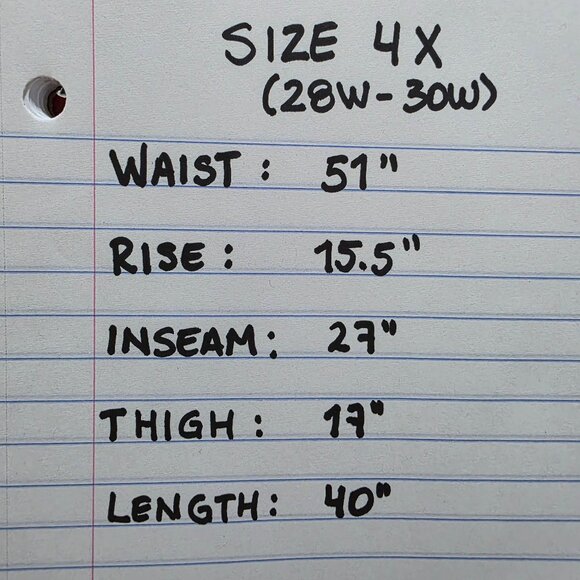 SIZE 4X
(28W-30W)
WAIST: 51"
RISE: 15.5"
INSEAM: 27"
THIGH: 17"
LENGTH: 40"